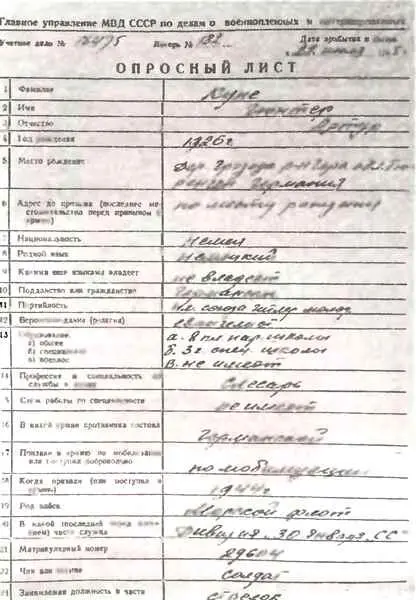 Главное управление МВД СССР по делам о военнопленных и
Учетное дело № Лагерь № Дата прибытия в
ОПРОСНЫЙ ЛИСТ
1 Фамилия Кунс
2 Имя Гюнтер
3 Отчество Артур
4 Год рождения 1926 г.
5 Место рождения Дер. р-н Гера обл. Тюрингия Германия
6 Адрес до призыва (последнее местожительство перед призывом в армию) по месту рождения
7 Национальность немец
8 Родной язык немецкий
9 Какими еще языками владеет не владеет
10 Подданство или гражданство
11 Партийность чл. союза гитлер. молод.
12 Вероисповедание (религия) евангелист
13 Образование:
а) общее а. 8 кл. нар. школы
б) специальное б. 3 г. спец. школы
в) военное в. не имеет
14 Профессия и специальность до службы в слесарь
15 Стаж работы по специальности не имеет
16 В какой армии противника состоял Германской
17 Призван в армию по мобилизации или поступил добровольно по мобилизации
18 Когда призван (или поступил в армию) 1944 г.
19 Род войск Морской флот
20 В какой (последней перед пленением) части служил Дивизия "30 Января" СС
21 Матрикулярный номер 29604
22 Чин или солдат
23 Занимаемая должность в части стрелок